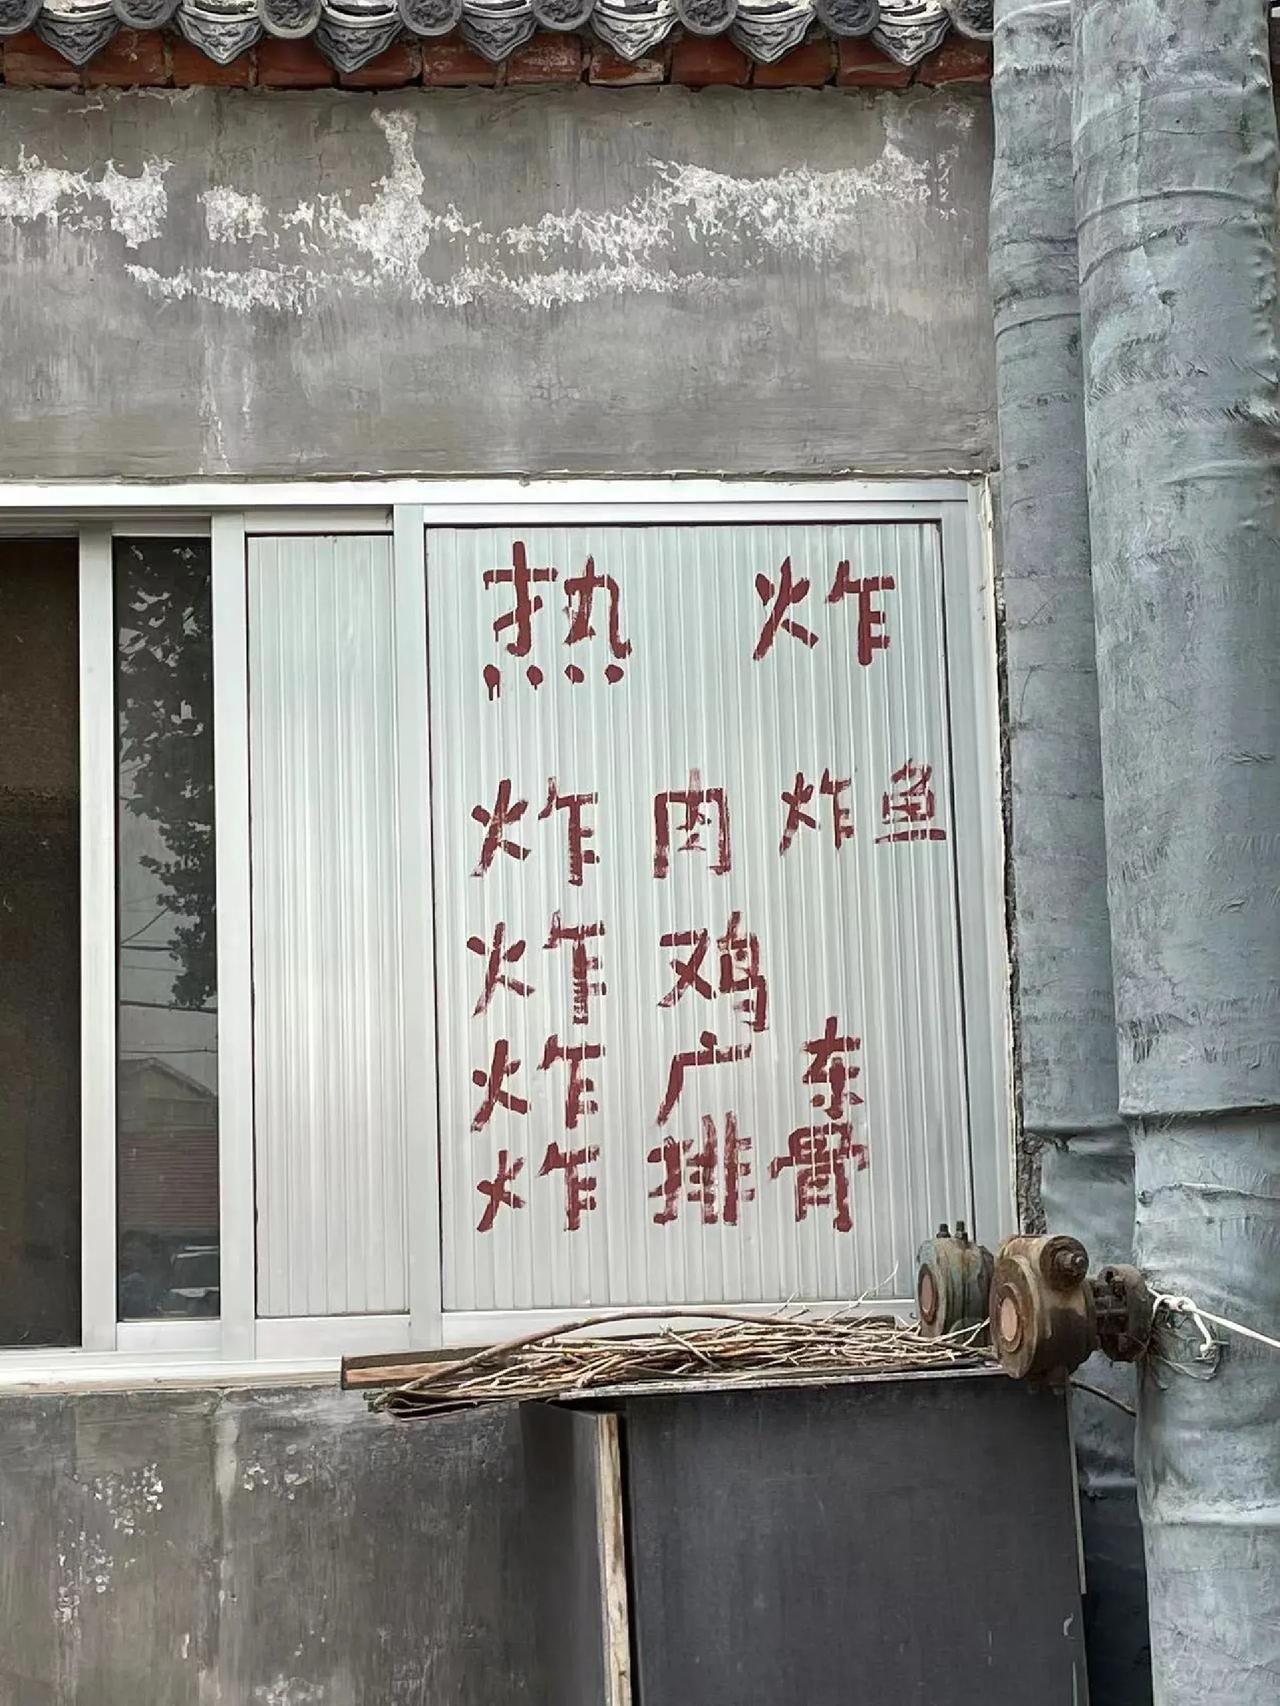 热 炸
炸肉 炸鱼
炸鸡
炸广东
炸排骨